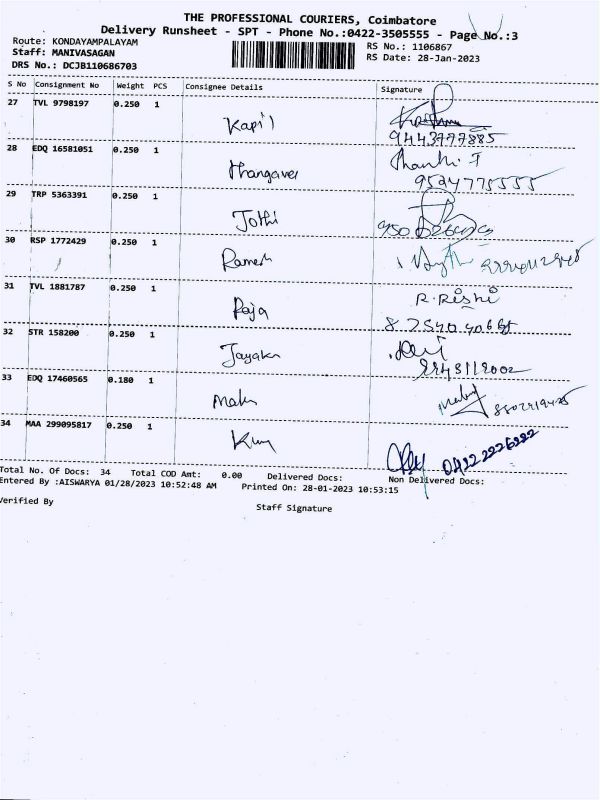 THE PROFESSIONAL COURIERS, Coimbatore
Delivery Runsheet - SPT - Phone No.:0422-3505555 - Page No.:3
Route: KONDAYAMPALAYAM
RS No.: 1106867
Staff: MANIVASAGAN
RS Date: 28-Jan-2023
DRS No.: DCJB110686703
S No Consignment No Weight PCS Consignee Details Signature
27 TVL 9798197 0.250 1
Kapil
9443777885
28 EDQ 16581051 0.250 1
Thangavel
9524775555
29 TRP 5363391 0.250 1
Jothi
30 RSP 1772429 0.250 1
Ramesh
31 TVL 1881787 0.250 1
Raja R.Rishi
32 STR 158200 0.250 1
Jayakr
33 EDQ 17460565 0.180 1
34 MAA 299095817 0.250 1
0422 2226222
Total No. Of Docs: 34 Total COD Amt: 0.00 Delivered Docs: Non Delivered Docs:
Entered By :AISWARYA 01/28/2023 10:52:48 AM Printed On: 28-01-2023 10:53:15
Verified By
Staff Signature